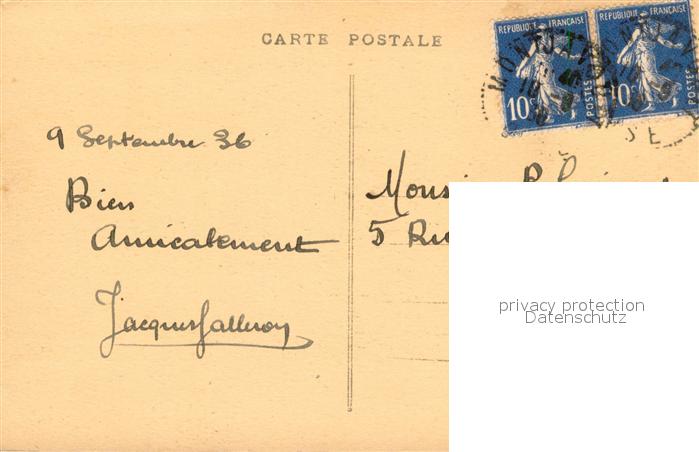 CARTE POSTALE
REPUBLIQUE FRANÇAISE
POSTES
10c
REPUBLIQUE FRANÇAISE
POSTES
10c
9 Septembre 36
Bien
Amicalement
Jacques Galleron
5
privacy protection
Datenschutz